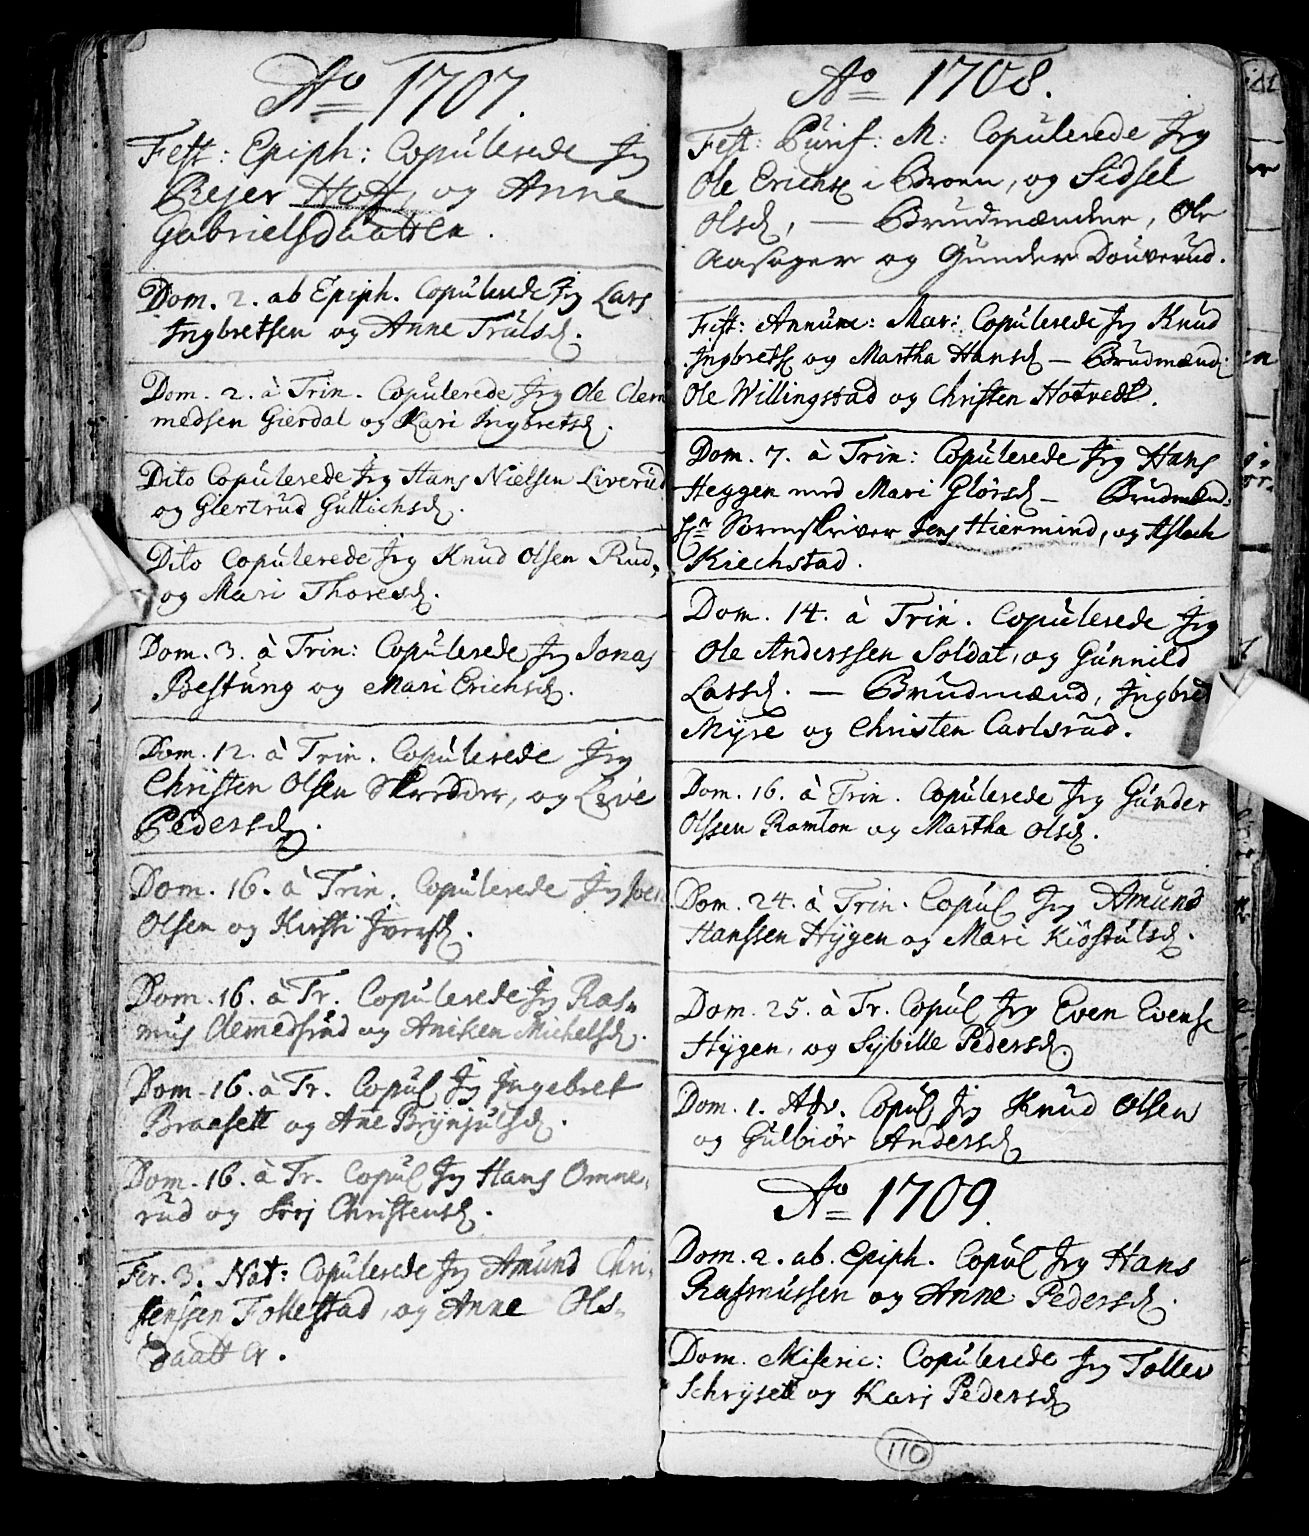 Ao 1707.
Fest: Epiph: Copulerede Jeg
Bejer Hoff, og Anne
Gabrielsdaatter.
Dom. 2. ab Epiph. Copulerede Jeg Lars
Ingbretsen og Anne Trulsd.
Dom. 2. à Trin. Copulerede Jeg Ole Clem
medsen Gierdal og Kari Ingbretsd.
Dito Copulerede Jeg Hans Nielsen Liverud
og Giertrud Gullichsd.
Dito Copulerede Jeg Knud Olsen Rud,
og Mari Thoresd.
Dom. 3. à Trin: Copulerede Jeg Jonas
Bestung og Mari Erichsd.
Dom. 12. à Trin. Copulerede Jeg
Christen Olsen Skredder, og Live
Pedersd.
Dom. 16. à Trin. Copulerede Jeg Joen
Olsen og Kirsti Iversd.
Dom. 16. à Tr. Copulerede Jeg Ras-
mus Clemedsrud og Aniken Michelsd.
Dom. 16. à Tr. Copul Jeg Ingebret
Braesett og Ane Brynjulsd.
Dom. 16. à Tr. Copul Jeg Hans Omne-
rud og Siri Christensd.
Fer. 3. Nat: Copulerede Jeg Amund Chri-
stenssen Tollestad, og Anne Ols-
daatter.
Ao 1708.
Fest: Purif: M: Copulerede Jeg
Ole Erichs i Broen, og Sidsel
Olsd, — Brudmændene, Ole
Aasager og Gunder Douverud.
Fest: Annunc: Mar: Copulerede Jeg Knud
Ingbrets og Martha Hansd — Brudmænd:
Ole Willingstad og Christen Hotvedt.
Dom. 7. à Trin: Copulerede Jeg Hans
Heggen med Mari Glørsd — Brudmænd:
Hr Sorenskriver Jens Hiermind, og Aslach
Kiechstad.
Dom. 14. à Trin. Copulerede Jeg
Ole Anderssen Soldat, og Gunnild
Larsd. — Brudmænd, Ingbret
Myre og Christen Carlsrud.
Dom. 16. à Trin. Copulerede Jeg Gunder
Olssen Ramton og Martha Olsd.
Dom. 24. à Trin. Copul Jeg Amund
Hanssen Hÿgen og Mari Kiöstulsd.
Dom. 25. à Tr. Copul Jeg Even Evens
Hÿgen, og Sÿbille Pedersd
Dom. 1. Adv. Copul Jeg Knud Olsen
og Gulbiør Andersd
Ao 1709.
Dom. 2. ab. Epiph. Copul Jeg Hans
Rasmussen og Anne Pedersd.
Dom. Miseric: Copulerede Jeg Tollev
Schrÿsett og Kari Pedersd
110